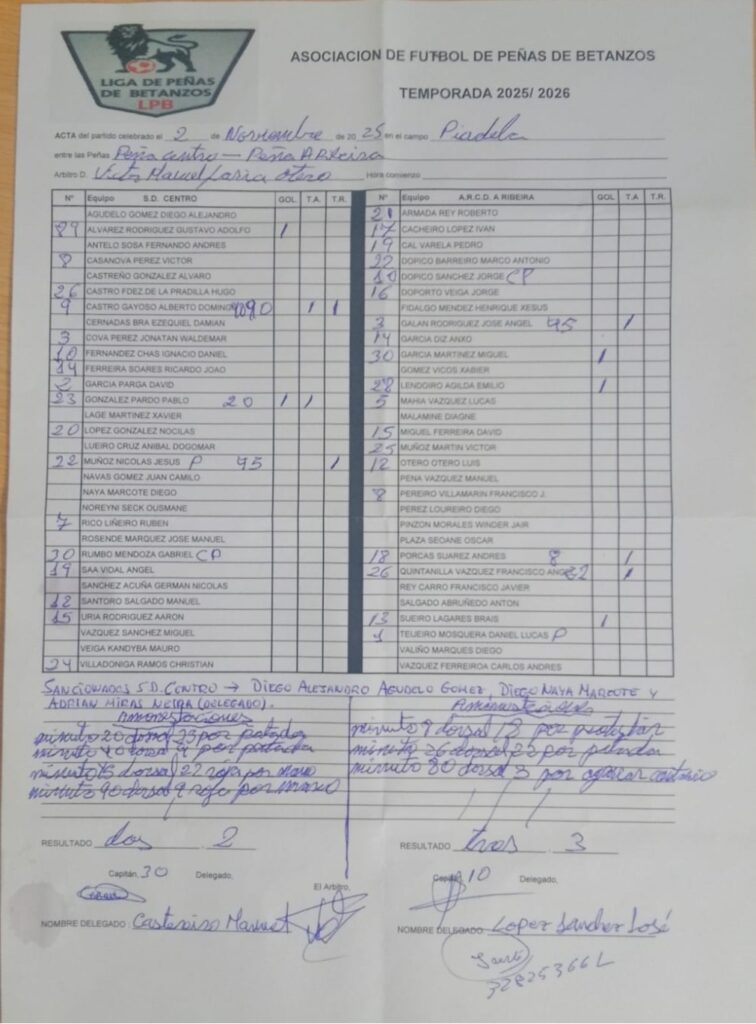 LIGA DE PEÑAS
DE BETANZOS
LPB
ASOCIACION DE FUTBOL DE PEÑAS DE BETANZOS
TEMPORADA 2025/ 2026
ACTA del partido celebrado el 2 de Noviembre de 2025 en el campo Piadela
entre las Peñas Peña centro — Peña A Ribeira
Arbitro D. Victor Manuel Otero Hora comienzo
Nº Equipo S.D. CENTRO GOL T.A. T.R. Nº Equipo A.R.C.D. A RIBEIRA GOL T.A T.R.
AGUDELO GOMEZ DIEGO ALEJANDRO 21 ARMADA REY ROBERTO
89 ALVAREZ RODRIGUEZ GUSTAVO ADOLFO 1 17 CACHEIRO LOPEZ IVAN
ANTELO SOSA FERNANDO ANDRES 19 CAL VARELA PEDRO
8 CASANOVA PEREZ VICTOR 22 DOPICO BARREIRO MARCO ANTONIO
CASTREÑO GONZALEZ ALVARO 10 DOPICO SANCHEZ JORGE CP
26 CASTRO FDEZ DE LA PRADILLA HUGO 16 DOPORTO VEIGA JORGE
9 CASTRO GAYOSO ALBERTO DOMINGO 90 1 1 FIDALGO MENDEZ HENRIQUE XESUS
CERNADAS BRA EZEQUIEL DAMIAN 3 GALAN RODRIGUEZ JOSE ANGEL 45 1
3 COVA PEREZ JONATAN WALDEMAR 14 GARCIA DIZ ANXO
10 FERNANDEZ CHAS IGNACIO DANIEL 30 GARCIA MARTINEZ MIGUEL 1
14 FERREIRA SOARES RICARDO JOAO GOMEZ VICOS XABIER
2 GARCIA PARGA DAVID 28 LENDOIRO AGILDA EMILIO 1
23 GONZALEZ PARDO PABLO 20 1 1 5 MAHIA VAZQUEZ LUCAS
LAGE MARTINEZ XAVIER MALAMINE DIAGNE
20 LOPEZ GONZALEZ NOCILAS 15 MIGUEL FERREIRA DAVID
LUEIRO CRUZ ANIBAL DOGOMAR 25 MUÑOZ MARTIN VICTOR
22 MUÑOZ NICOLAS JESUS P 45 1 12 OTERO OTERO LUIS
NAVAS GOMEZ JUAN CAMILO PENA VAZQUEZ MANUEL
NAYA MARCOTE DIEGO 8 PEREIRO VILLAMARIN FRANCISCO J.
NOREYNI SECK OUSMANE PEREZ LOUREIRO DIEGO
7 RICO LIÑEIRO RUBEN PINZON MORALES WINDER JAIR
ROSENDE MARQUEZ JOSE MANUEL PLAZA SEOANE OSCAR
30 RUMBO MENDOZA GABRIEL CP 18 PORCAS SUAREZ ANDRES 8 1
19 SAA VIDAL ANGEL 26 QUINTANILLA VAZQUEZ FRANCISCO 1
SANCHEZ ACUÑA GERMAN NICOLAS REY CARRO FRANCISCO JAVIER
12 SANTORO SALGADO MANUEL SALGADO ABRUÑEDO ANTON
15 URIA RODRIGUEZ AARON 13 SUEIRO LAGARES BRAIS 1
VAZQUEZ SANCHEZ MIGUEL 1 TEIJEIRO MOSQUERA DANIEL LUCAS P
VEIGA KANDYBA MAURO VALIÑO MARQUES DIEGO
24 VILLADONIGA RAMOS CHRISTIAN VAZQUEZ FERREIROA CARLOS ANDRES
SANCIONADOS S.D. CENTRO → DIEGO ALEJANDRO AGUDELO GOMEZ, DIEGO NAYA MARCOTE Y
ADRIAN MIRAS NEIRA (DELEGADO).
Amonestaciones
minuto 20 dorsal 23 por patada
minuto dorsal 9 por patada
minuto 45 dorsal 22 roja por mano
minuto 90 dorsal 9 roja por mano
Amonestaciones
minuto 8 dorsal 18 por protestar
minuto 26 dorsal por patada
minuto 80 dorsal 3 por agarrar contrario
RESULTADO dos 2 RESULTADO tres 3
Capitán, 30 Delegado, El Arbitro, Capitán, 10 Delegado,
NOMBRE DELEGADO Manuel NOMBRE DELEGADO Lopez Sanchez José